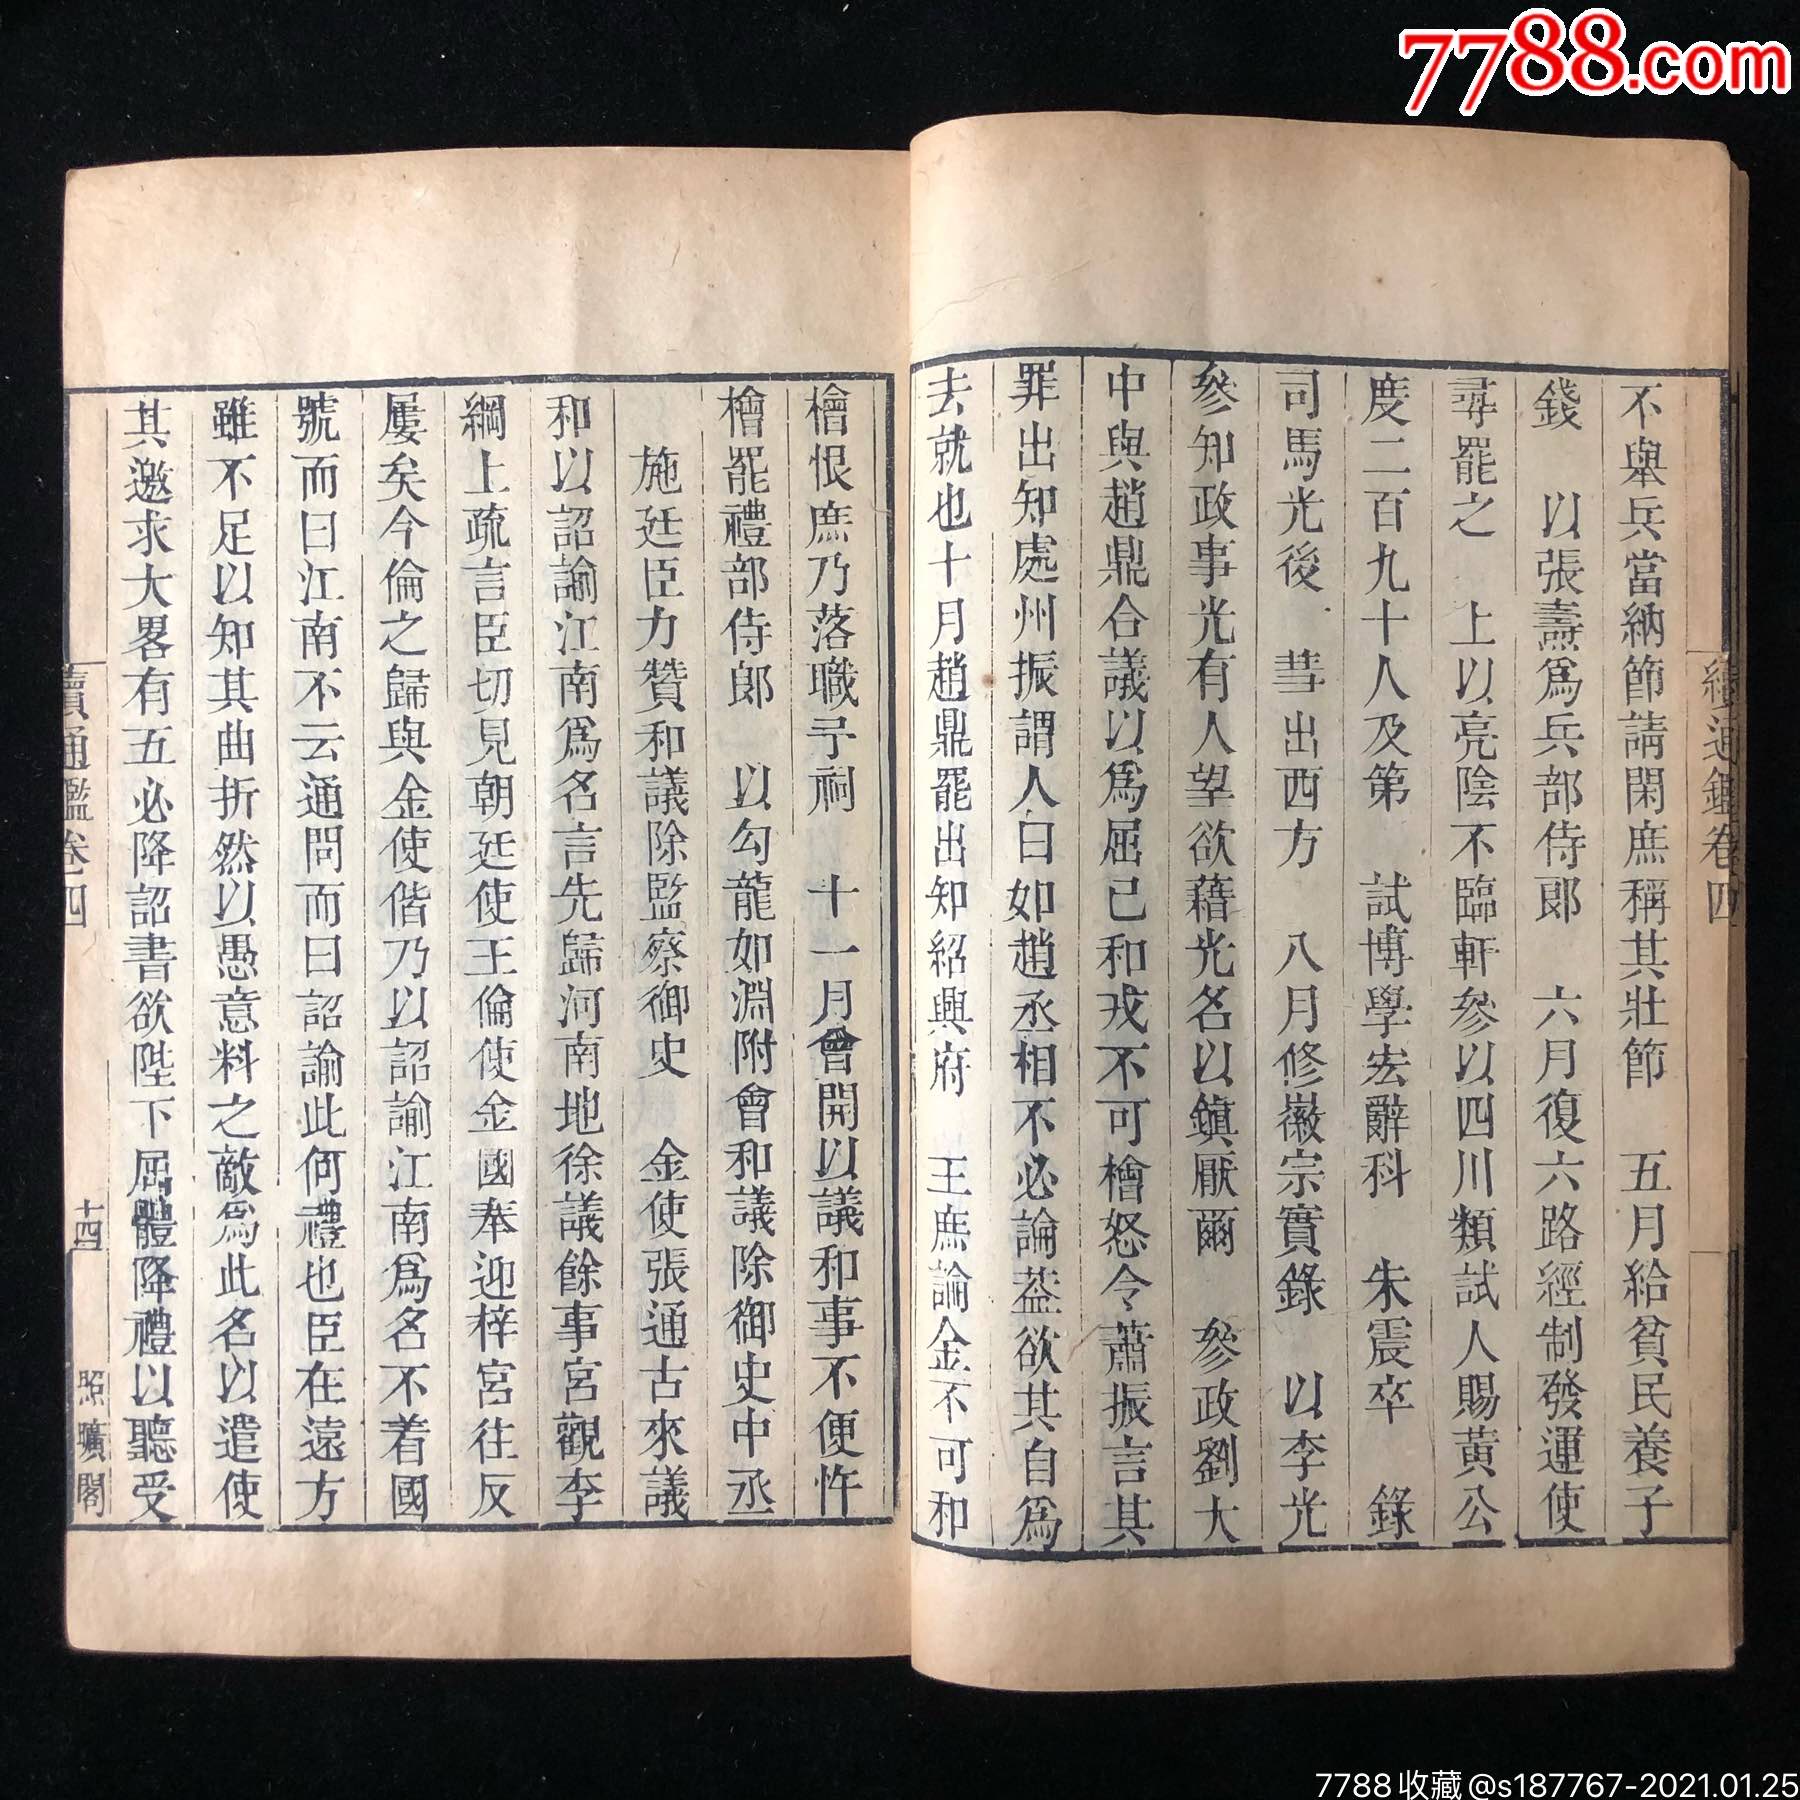 7788.com
續通鑑卷四
不舉兵當納節請閑庶稱其壯節　五月給貧民養子
錢　以張燾爲兵部侍郎　六月復六路經制發運使
尋罷之　上以亮陰不臨軒參以四川類試人賜黃公
度二百九十人及第　試博學宏辭科　朱震卒　錄
司馬光後　彗出西方　八月修徽宗實錄　以李光
參知政事光有人望欲藉光名以鎮厭爾　參政劉大
中與趙鼎合議以爲屈已和戎不可檜怒令蕭振言其
罪出知處州振謂人曰如趙丞相不必論葢欲其自爲
去就也十月趙鼎罷出知紹興府　王庶論金不可和
檜恨庶乃落職予祠　十一月會開以議和事不便忤
檜罷禮部侍郎　以勾龍如淵附會和議除御史中丞
施廷臣力贊和議除監察御史　金使張通古來議
和以詔諭江南爲名言先歸河南地徐議餘事宮觀李
綱上疏言臣切見朝廷使王倫使金國奉迎梓宮往反
屢矣今倫之歸與金使偕乃以詔諭江南爲名不着國
號而曰江南不云通問而曰詔諭此何禮也臣在遠方
雖不足以知其曲折然以愚意料之敵爲此名以遣使
其邀求大畧有五必降詔書欲陛下屈體降禮以聽受
續通鑑卷四
十四
照曠閣
7788收藏@s187767-2021.01.25